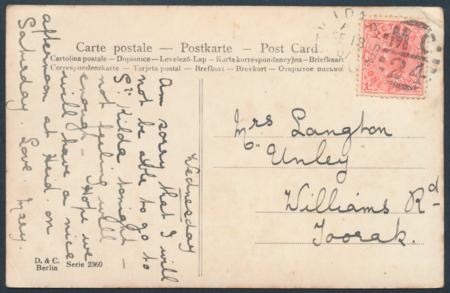 Carte postale – Postkarte – Post Card
Cartolina postale – Dopisnice – Levelező-Lap – Karta korrespondencyjna – Briefkaart
Correspondenzkarte – Tarjeta postal – Brefkort – Brevkort – Открытое письмо
Wednesday
Am sorry that I will
not be able to go to
St Kilda tonight –
not feeling well
enough – Hope we
will have a nice
afternoon at Heid. on
Saturday. Love Mary.
Mrs Langton
Unley
Williams Rd
Toorak.
D. & C.
Berlin Serie 2360
M.C.
24